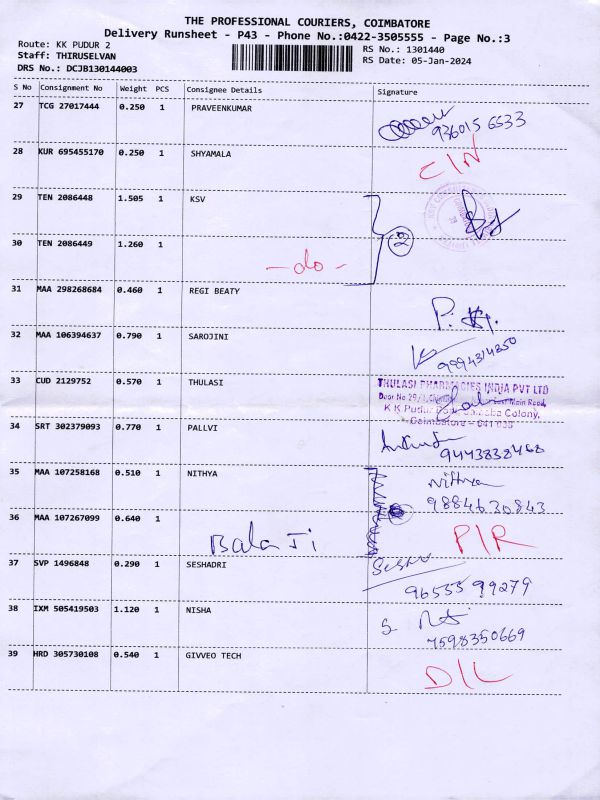 THE PROFESSIONAL COURIERS, COIMBATORE
Delivery Runsheet - P43 - Phone No.:0422-3505555 - Page No.:3
Route: KK PUDUR 2
RS No.: 1301440
Staff: THIRUSELVAN
RS Date: 05-Jan-2024
DRS No.: DCJB130144003
S No Consignment No Weight PCS Consignee Details Signature
27 TCG 27017444 0.250 1 PRAVEENKUMAR
936015 6533
28 KUR 695455170 0.250 1 SHYAMALA
C/N
29 TEN 2086448 1.505 1 KSV
2
30 TEN 2086449 1.260 1
- do -
31 MAA 298268684 0.460 1 REGI BEATY
32 MAA 106394637 0.790 1 SAROJINI
9994314350
33 CUD 2129752 0.570 1 THULASI
THULASI PHARMACIES INDIA PVT LTD
Door No 29/1, Main Road,
K K Pudur Colony,
Coimbatore - 641 038
34 SRT 302379093 0.770 1 PALLVI
9443838468
35 MAA 107258168 0.510 1 NITHYA
Nithya
9884630843
36 MAA 107267099 0.640 1
Bala Ji
P/R
37 SVP 1496848 0.290 1 SESHADRI
96555 99279
38 IXM 505419503 1.120 1 NISHA
S.
7598350669
39 HRD 305730108 0.540 1 GIVVEO TECH
D/L